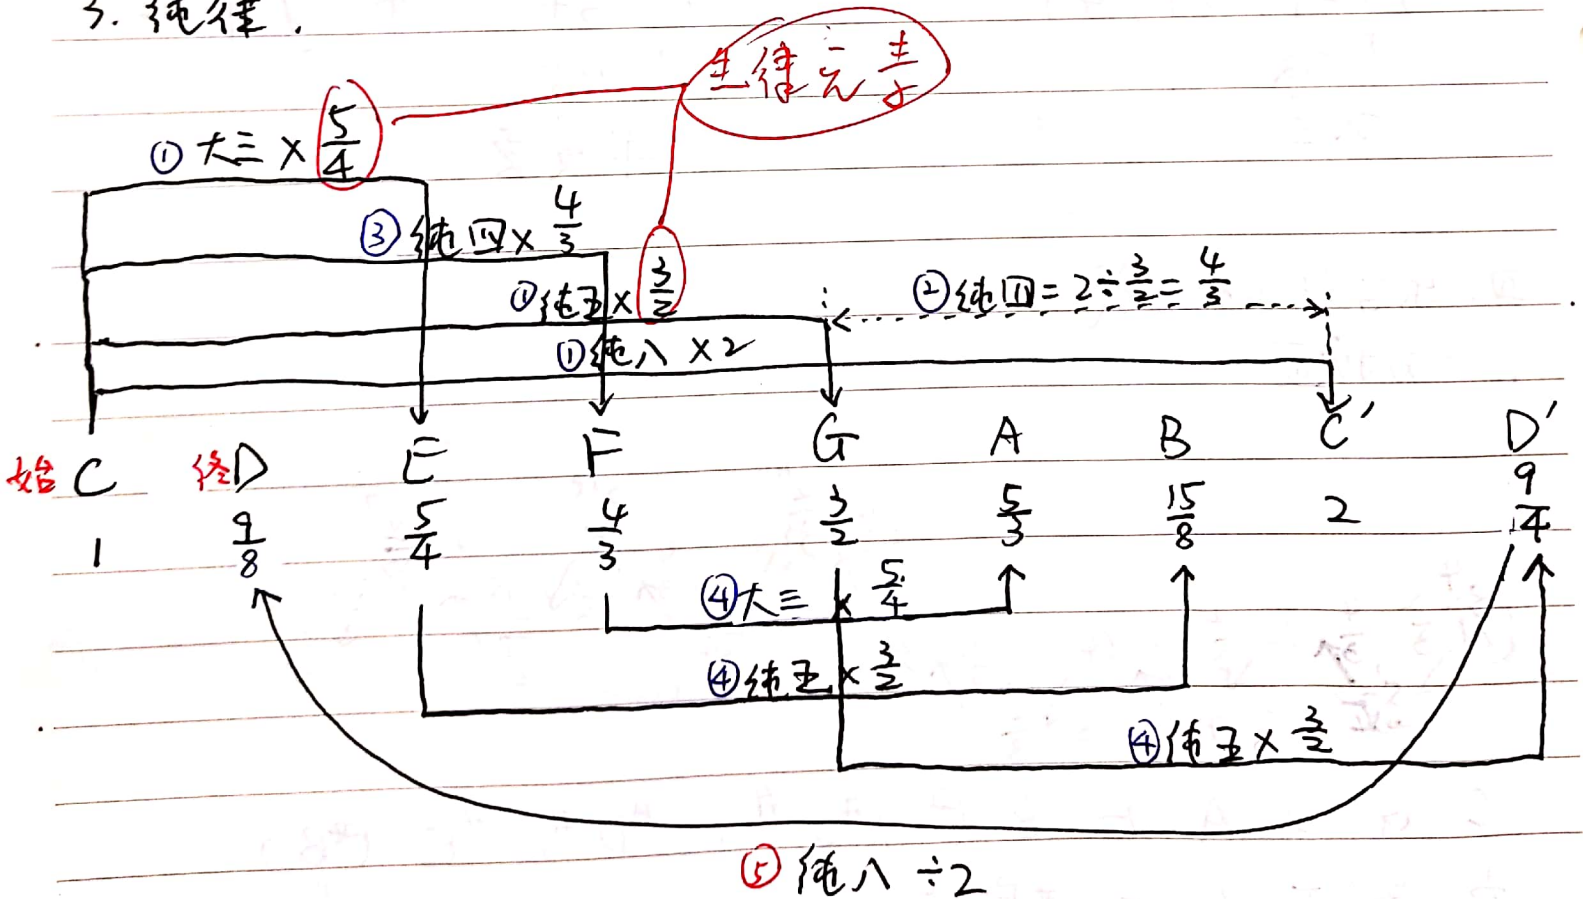 3. 纯律.
生律元素
① 大三 × 5/4
③ 纯四 × 4/3
① 纯五 × 3/2
② 纯四 = 2 ÷ 3/2 = 4/3
① 纯八 × 2
始 C 终 D E F G A B C' D'
1 9/8 5/4 4/3 3/2 5/3 15/8 2 9/4
④ 大三 × 5/4
④ 纯五 × 3/2
④ 纯五 × 3/2
⑤ 纯八 ÷ 2